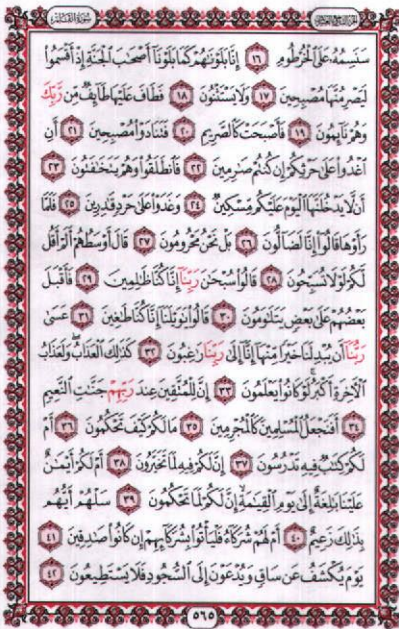 الجزء التاسع والعشرون سورة القلم
سَنَسِمُهُۥ عَلَى ٱلْخُرْطُومِ ١٦ إِنَّا بَلَوْنَٰهُمْ كَمَا بَلَوْنَآ أَصْحَٰبَ ٱلْجَنَّةِ إِذْ أَقْسَمُوا۟
لَيَصْرِمُنَّهَا مُصْبِحِينَ ١٧ وَلَا يَسْتَثْنُونَ ١٨ فَطَافَ عَلَيْهَا طَآئِفٌ مِّن رَّبِّكَ
وَهُمْ نَآئِمُونَ ١٩ فَأَصْبَحَتْ كَٱلصَّرِيمِ ٢٠ فَتَنَادَوْا۟ مُصْبِحِينَ ٢١ أَنِ
ٱغْدُوا۟ عَلَىٰ حَرْثِكُمْ إِن كُنتُمْ صَٰرِمِينَ ٢٢ فَٱنطَلَقُوا۟ وَهُمْ يَتَخَٰفَتُونَ ٢٣
أَن لَّا يَدْخُلَنَّهَا ٱلْيَوْمَ عَلَيْكُم مِّسْكِينٌ ٢٤ وَغَدَوْا۟ عَلَىٰ حَرْدٍ قَٰدِرِينَ ٢٥ فَلَمَّا
رَأَوْهَا قَالُوٓا۟ إِنَّا لَضَآلُّونَ ٢٦ بَلْ نَحْنُ مَحْرُومُونَ ٢٧ قَالَ أَوْسَطُهُمْ أَلَمْ أَقُل
لَّكُمْ لَوْلَا تُسَبِّحُونَ ٢٨ قَالُوا۟ سُبْحَٰنَ رَبِّنَآ إِنَّا كُنَّا ظَٰلِمِينَ ٢٩ فَأَقْبَلَ
بَعْضُهُمْ عَلَىٰ بَعْضٍ يَتَلَٰوَمُونَ ٣٠ قَالُوا۟ يَٰوَيْلَنَآ إِنَّا كُنَّا طَٰغِينَ ٣١ عَسَىٰ
رَبُّنَآ أَن يُبْدِلَنَا خَيْرًا مِّنْهَآ إِنَّآ إِلَىٰ رَبِّنَا رَٰغِبُونَ ٣٢ كَذَٰلِكَ ٱلْعَذَابُ وَلَعَذَابُ
ٱلْءَاخِرَةِ أَكْبَرُ لَوْ كَانُوا۟ يَعْلَمُونَ ٣٣ إِنَّ لِلْمُتَّقِينَ عِندَ رَبِّهِمْ جَنَّٰتِ ٱلنَّعِيمِ
٣٤ أَفَنَجْعَلُ ٱلْمُسْلِمِينَ كَٱلْمُجْرِمِينَ ٣٥ مَا لَكُمْ كَيْفَ تَحْكُمُونَ ٣٦ أَمْ
لَكُمْ كِتَٰبٌ فِيهِ تَدْرُسُونَ ٣٧ إِنَّ لَكُمْ فِيهِ لَمَا تَخَيَّرُونَ ٣٨ أَمْ لَكُمْ أَيْمَٰنٌ
عَلَيْنَا بَٰلِغَةٌ إِلَىٰ يَوْمِ ٱلْقِيَٰمَةِ إِنَّ لَكُمْ لَمَا تَحْكُمُونَ ٣٩ سَلْهُمْ أَيُّهُم
بِذَٰلِكَ زَعِيمٌ ٤٠ أَمْ لَهُمْ شُرَكَآءُ فَلْيَأْتُوا۟ بِشُرَكَآئِهِمْ إِن كَانُوا۟ صَٰدِقِينَ ٤١
يَوْمَ يُكْشَفُ عَن سَاقٍ وَيُدْعَوْنَ إِلَى ٱلسُّجُودِ فَلَا يَسْتَطِيعُونَ ٤٢
٥٦٥